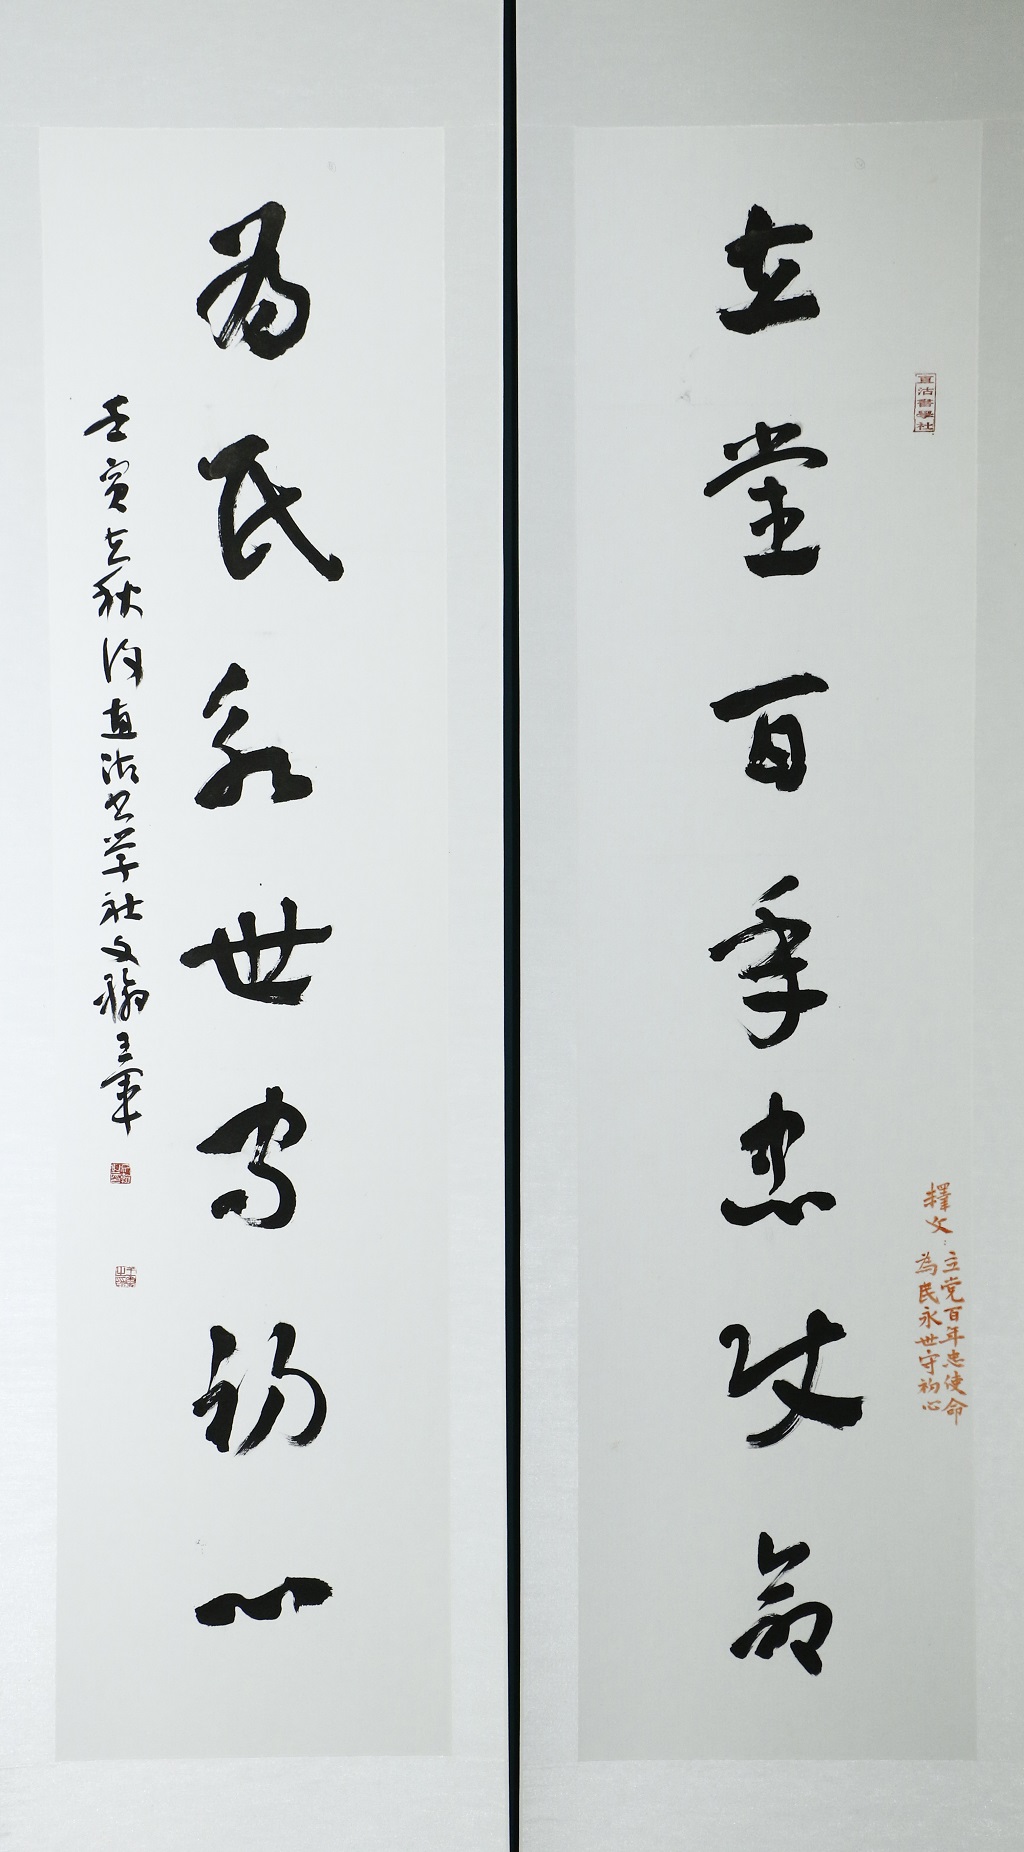 立党百年忠使命
直沽書學社
釋文：立党百年忠使命
為民永世守初心
为民永世守初心
壬寅立秋後直沽书学社文翰王軍